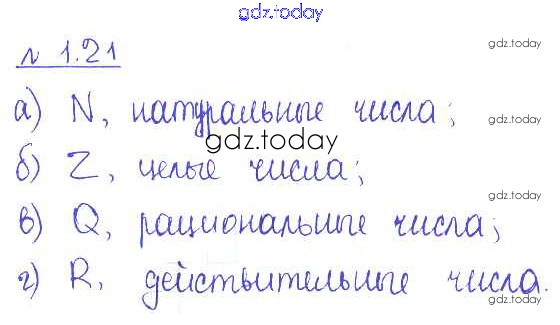 gdz.today
№ 1.21
gdz.today
а) N, натуральные числа;
gdz.today
gdz.today
б) Z, целые числа;
gdz.today
в) Q, рациональные числа;
г) R, действительные числа.
gdz.today